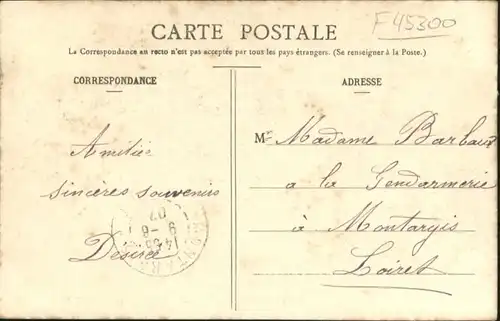 CARTE POSTALE
F 45300
La Correspondance au recto n'est pas acceptée par tous les pays étrangers. (Se renseigner à la Poste.)
CORRESPONDANCE
Amitiés
sincères souvenirs
Désirée
ADRESSE
M Madame Barbaut
a la Gendarmerie
à Montargis
Loiret